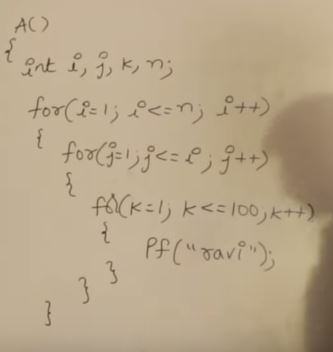 A()
{
int i, j, k, n;
for(i=1; i<=n; i++)
{
for(j=1; j<=i; j++)
{
for(k=1; k<=100; k++)
{
Pf("ravi");
}
}
}